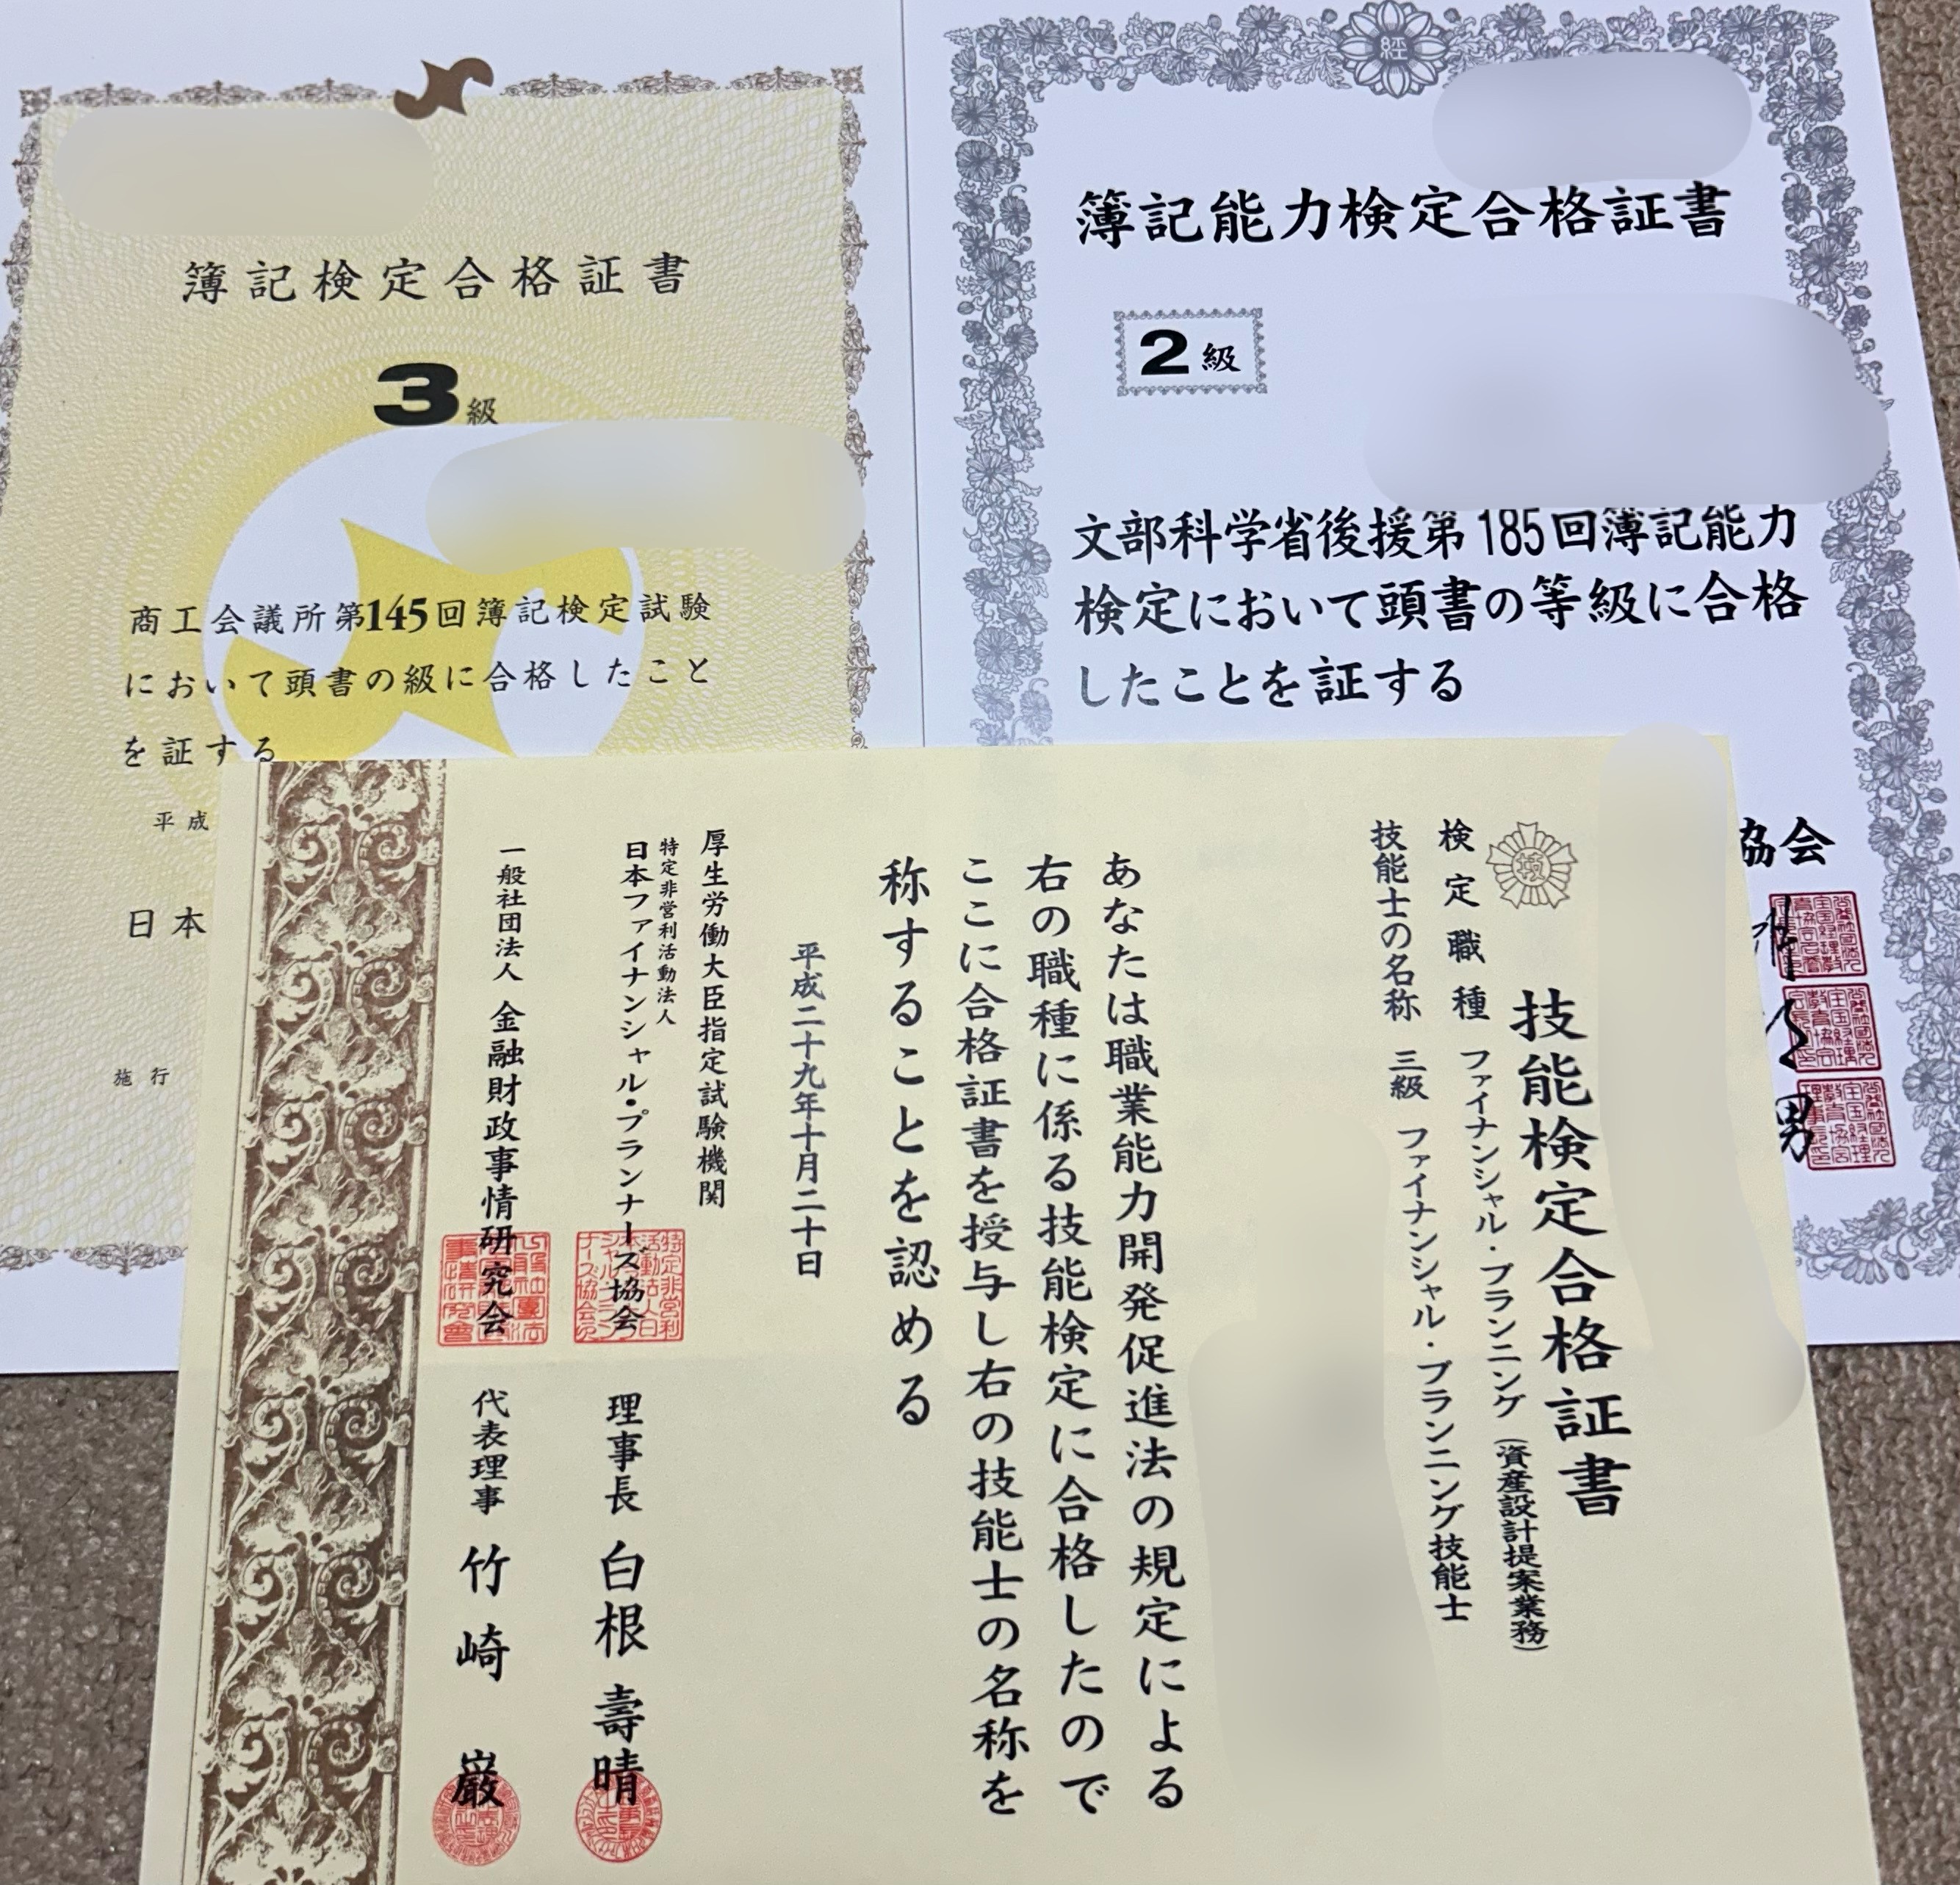 簿記検定合格証書
3級
商工会議所第145回簿記検定試験
において頭書の級に合格したこと
を証する
平成
日本
施行
経
簿記能力検定合格証書
2級
文部科学省後援第185回簿記能力
検定において頭書の等級に合格
したことを証する
協会
男
技能検定合格証書
検定職種 ファイナンシャル・プランニング(資産設計提案業務)
技能士の名称 三級 ファイナンシャル・プランニング技能士
あなたは職業能力開発促進法の規定による
右の職種に係る技能検定に合格したので
ここに合格証書を授与し右の技能士の名称を
称することを認める
平成二十九年十月二十日
厚生労働大臣指定試験機関
特定非営利活動法人
日本ファイナンシャル・プランナーズ協会 理事長 白根壽晴
一般社団法人 金融財政事情研究会 代表理事 竹崎巌